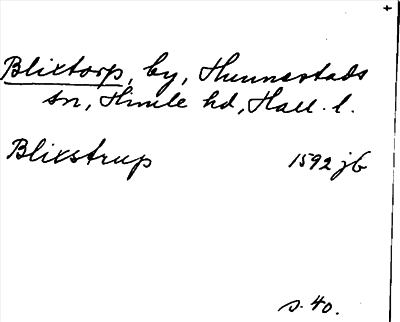 Blixtorp, by, Hunnestads
sn, Himle hd, Hall. l.
Blixstrup 1592 jb
s. 40.